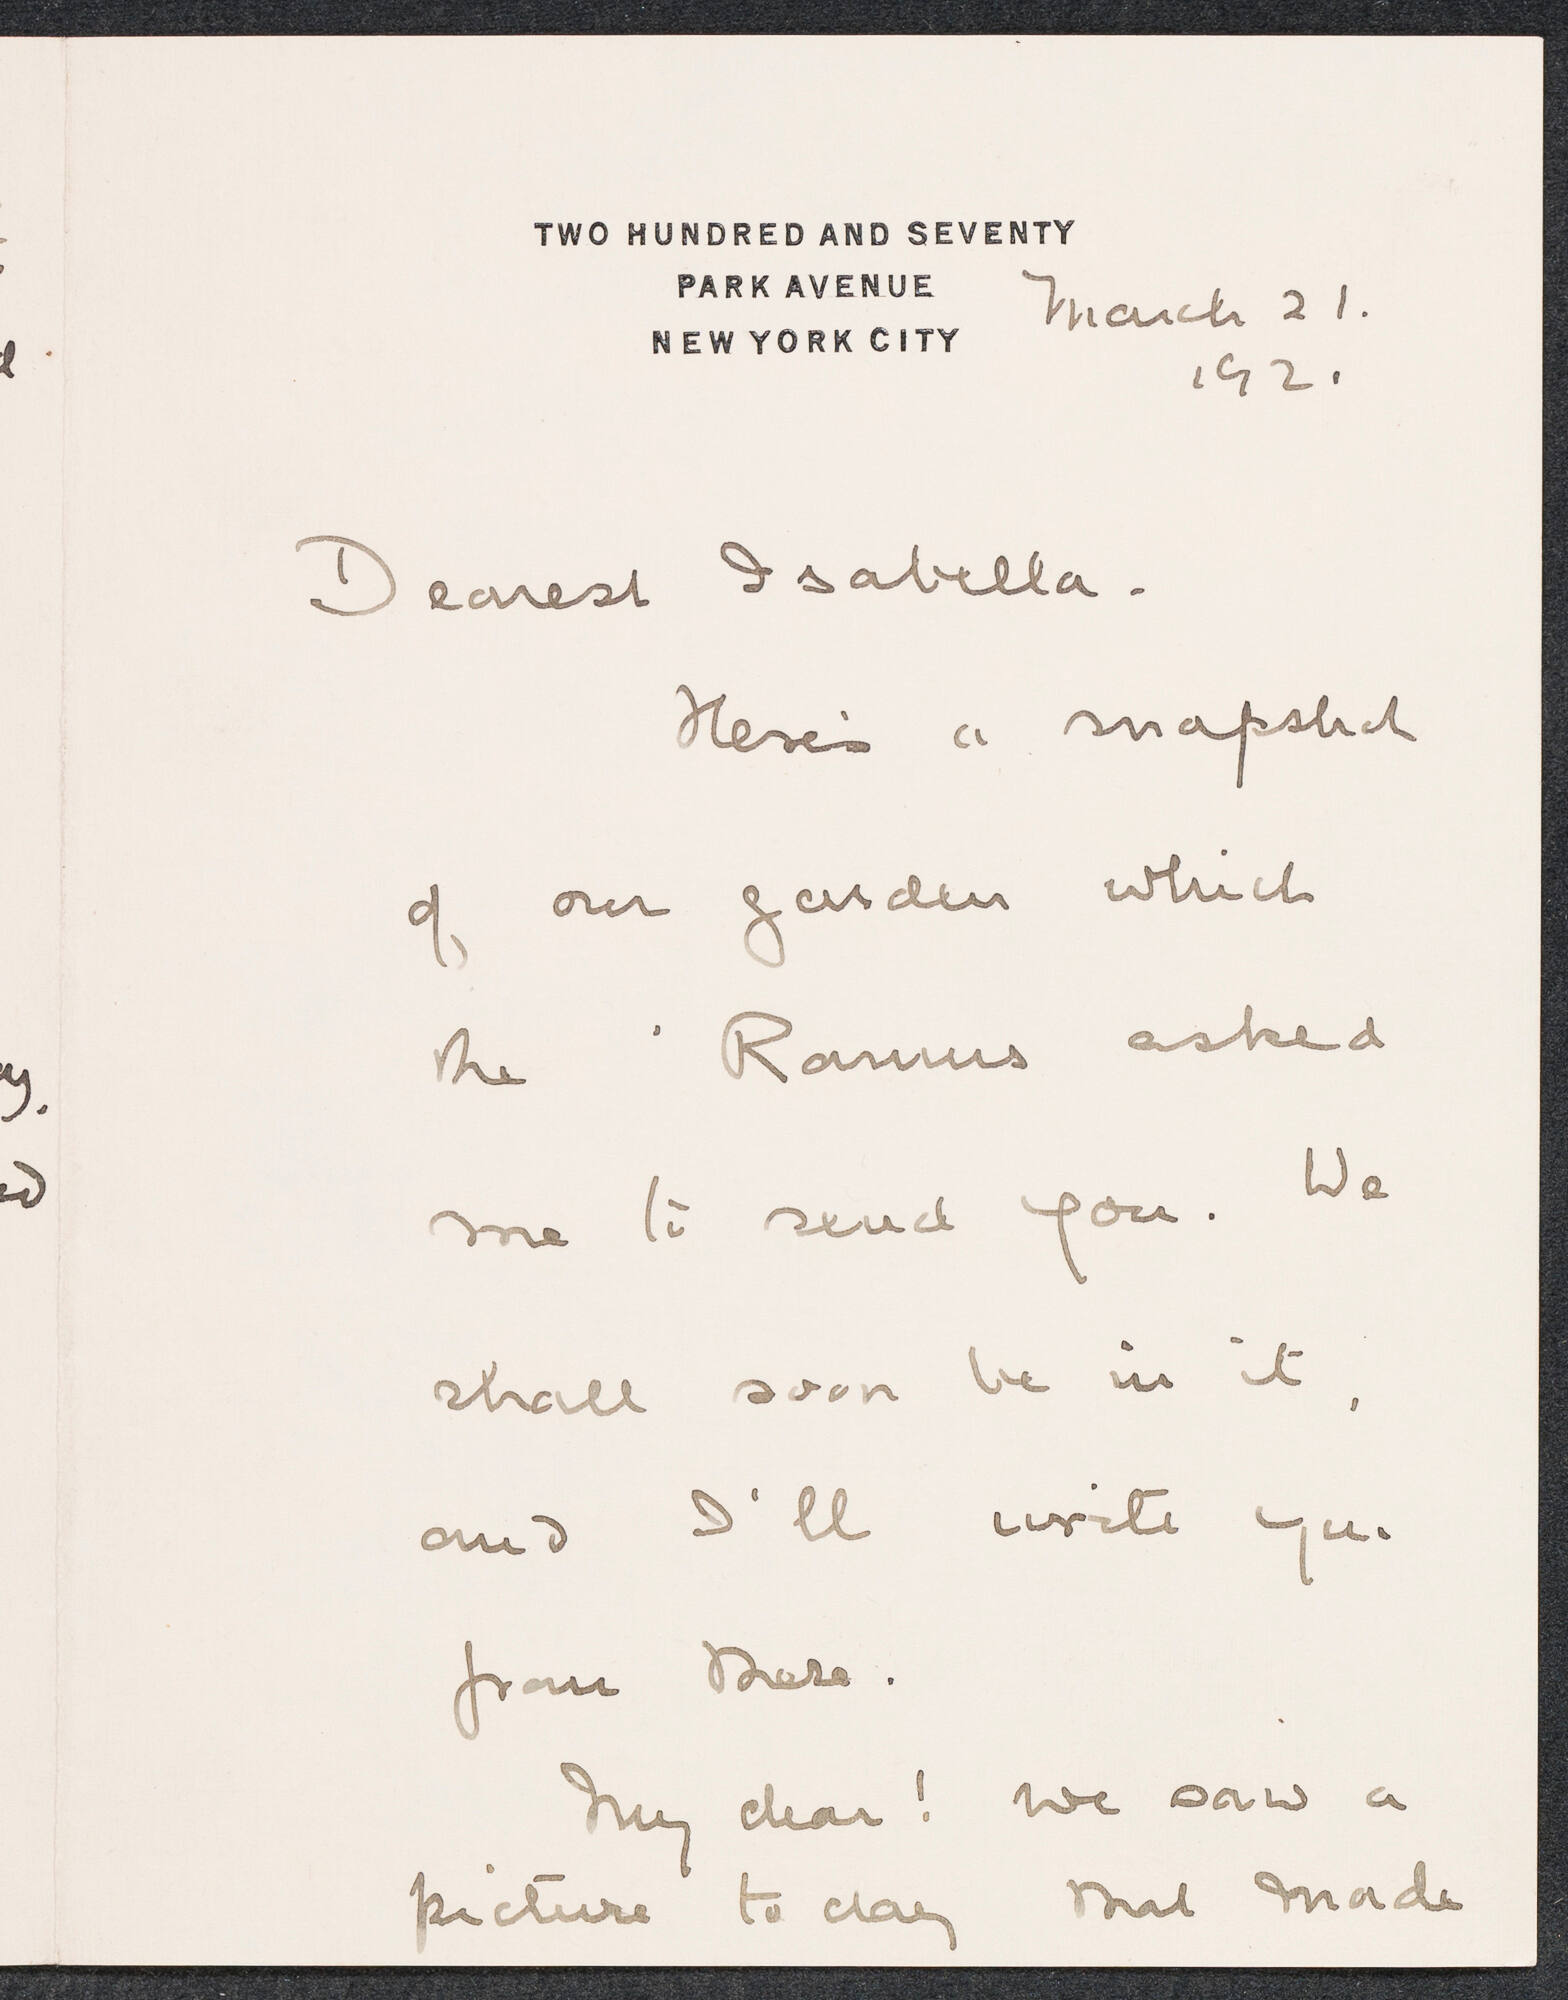 TWO HUNDRED AND SEVENTY
PARK AVENUE
NEW YORK CITY
March 21.
192.
Dearest Isabella.
Here's a snapshot
of our garden which
the Ranns asked
me to send you. We
shall soon be in it,
and I'll write you
from there.
My dear! we saw a
picture to day that made